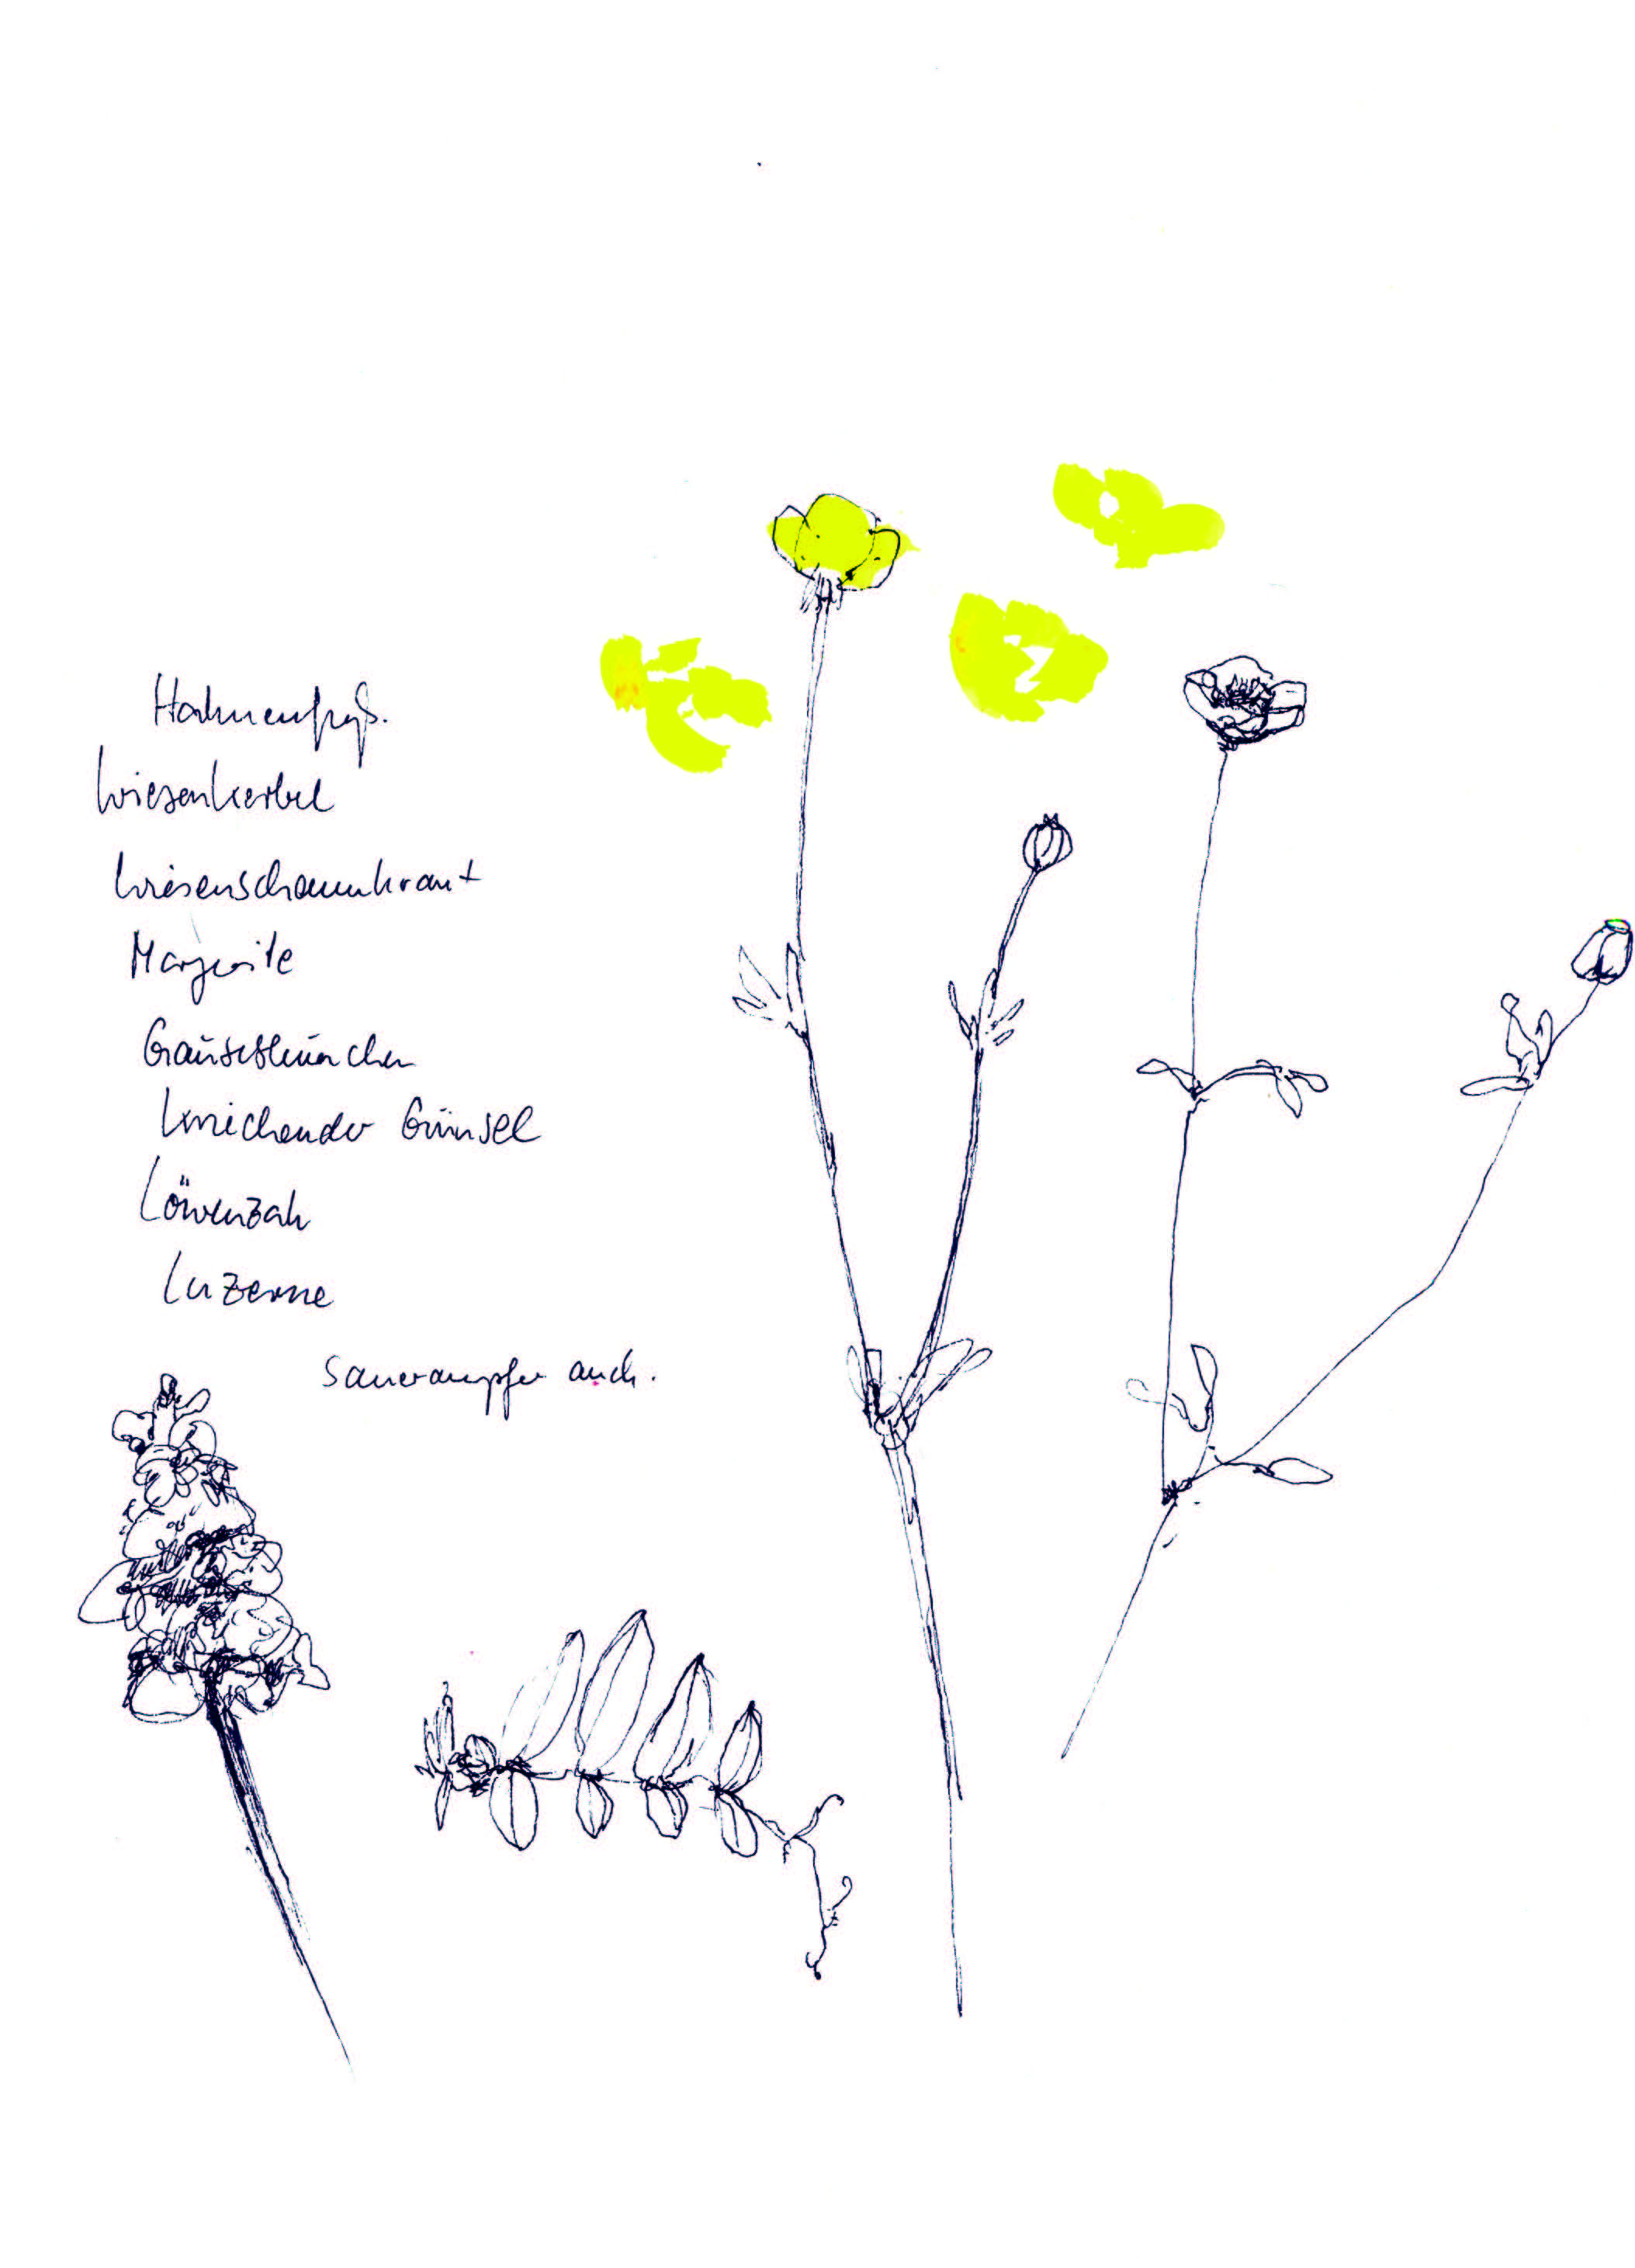 Hahnenfuß.
Wiesenkerbel
Wiesenschaumkraut
Margerite
Gänseblümchen
kriechender Günsel
Löwenzah
Luzerne
Sauerampfer auch.